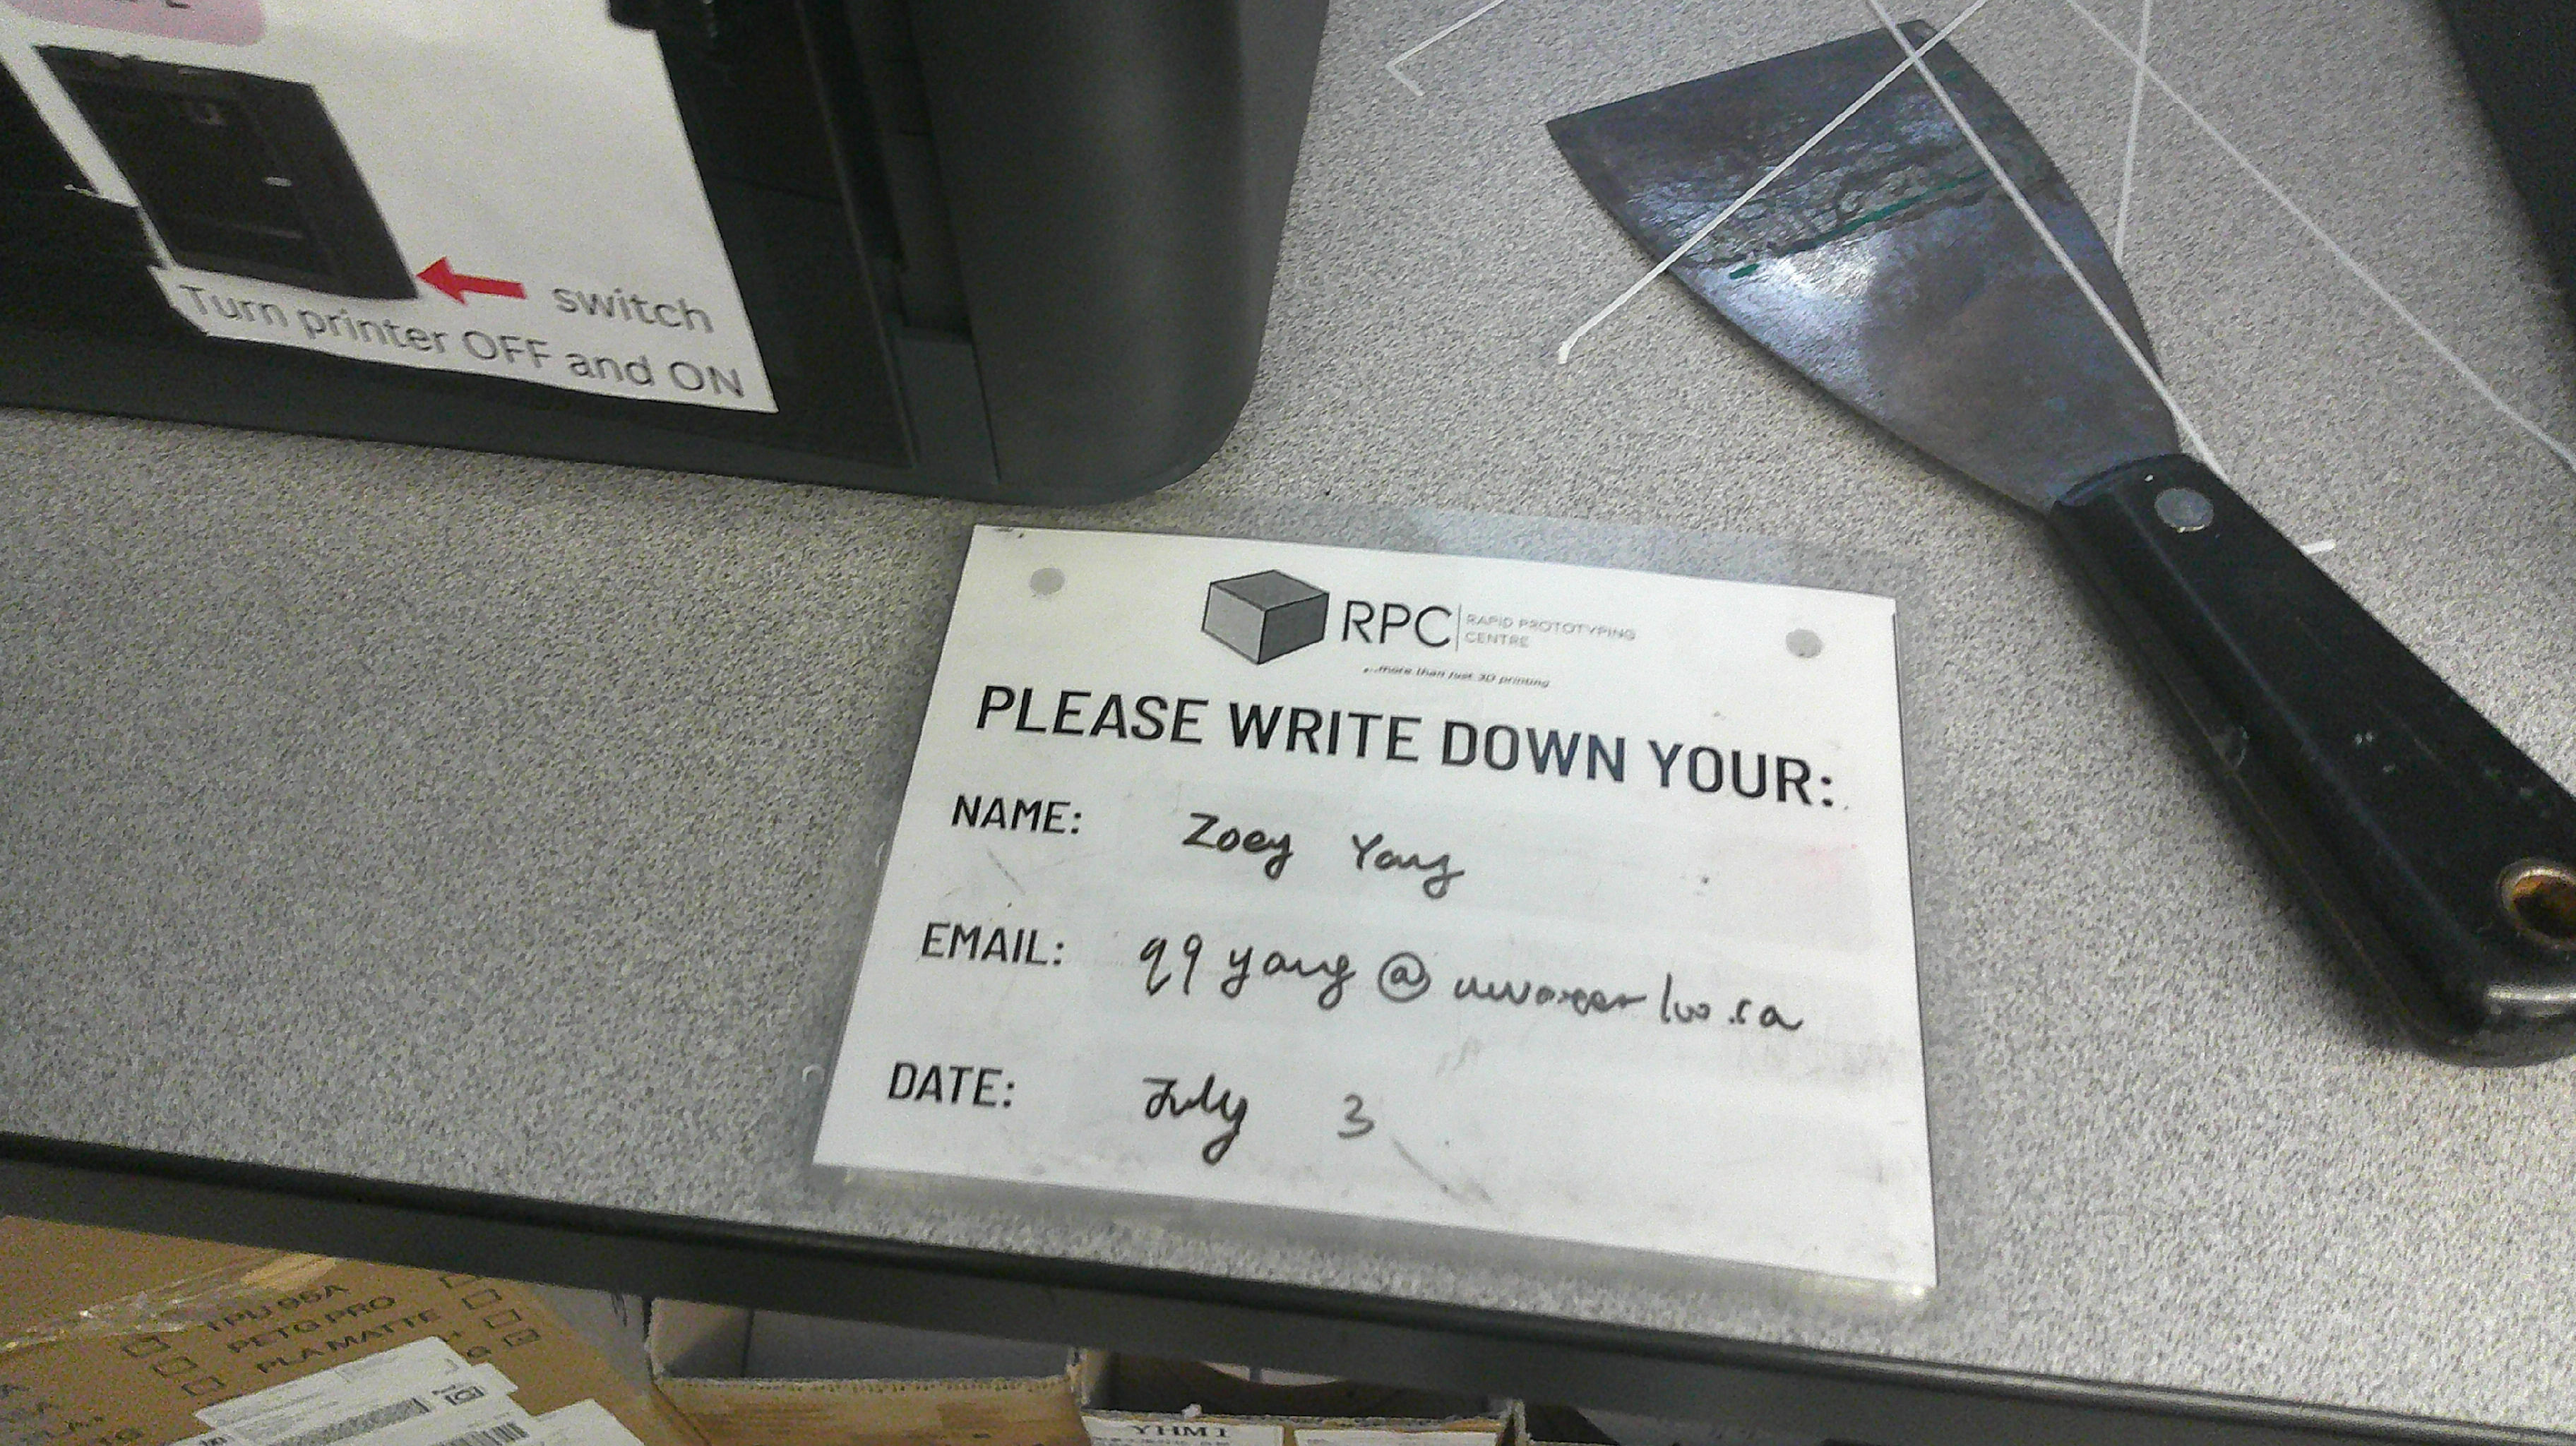 switch
Turn printer OFF and ON
RPC RAPID PROTOTYPING
CENTRE
...more than just 3D printing
PLEASE WRITE DOWN YOUR:
NAME: Zoey Yang
EMAIL: qq yang @ uwaterloo.ca
DATE: July 3
TPU 95A
PETG PRO
PLA MATTE
YHM1